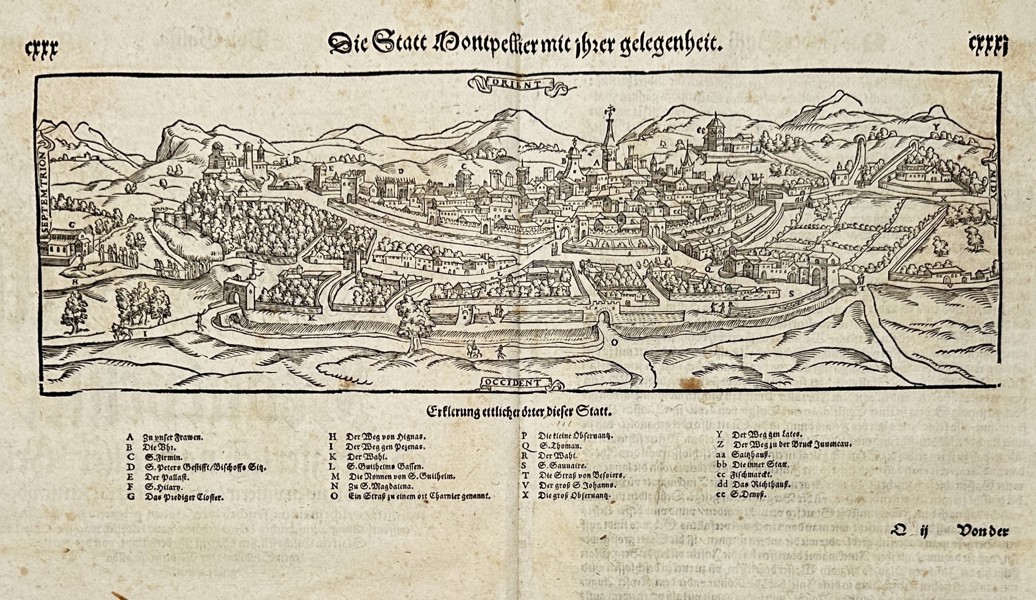 cxxx
Die Statt Montpellier mit jhrer gelegenheit.
cxxxj
ORIENT
SEPTEMTRION
MIDI
OCCIDENT
Erklerung ettlicher örter dieser Statt.
A Zu vnser Frawen.
B Die Vhr.
C S. Firmin.
D S. Peters Gestifft/Bischoffs Sitz.
E Der Pallast.
F S. Hilary.
G Das Prediger Closter.
H Der Weg von Hignas.
I Der Weg gen Pezenas.
K Der Wahl.
L S. Guilhems Gassen.
M Die Nonnen von S. Guilhem.
N Zu S. Magdalena.
O Ein Straß zu einem ort Charnier genannt.
P Die kleine Obseruantz.
Q S. Thoman.
R Der Wahl.
S S. Sauuaire.
T Die Straß von Besoiers.
V Der groß S. Johanns.
X Die groß Obseruantz.
Y Der Weg gen Lates.
Z Der Weg zu der Bruck Juuencau.
aa Saltzhauß.
bb Die inner Statt.
cc Fischmarckt.
dd Das Richthauß.
ee S. Denyß.
Q ij Von der